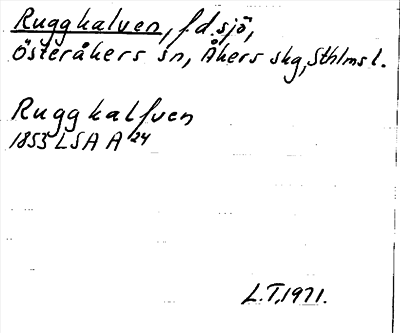 Ruggkalven, f.d. sjö,
Österåkers sn, Åkers skg, Sthlms l.
Ruggkalfven
1853 LSA A 24
L.T. 1971.